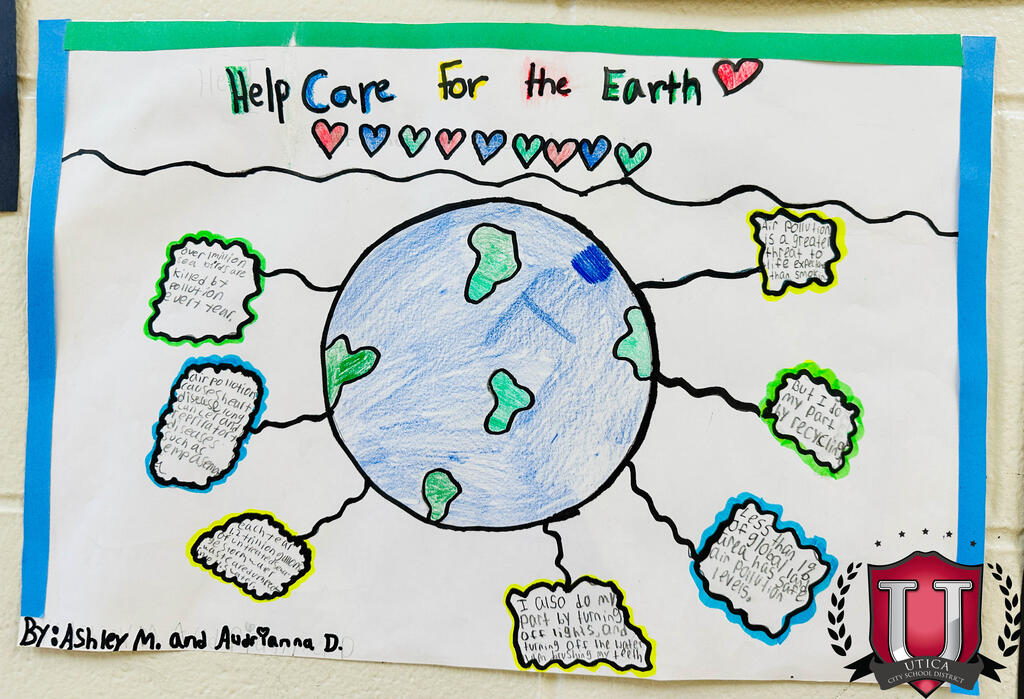 Help Care For the Earth
over 1 million
sea birds are
killed by
pollution
every year.
Air pollution
is a greater
threat to
life
than
air pollution
causes heart
disease, lung
cancer and
diseases
such as
But I do
my part
by recycling
each year
Less than 1%
of global land
area has safe
air pollution
levels.
I also do my
part by turning
off lights, and
turning off the water
when brushing my teeth
By: Ashley M. and Audrianna D.
U
UTICA
CITY SCHOOL DISTRICT